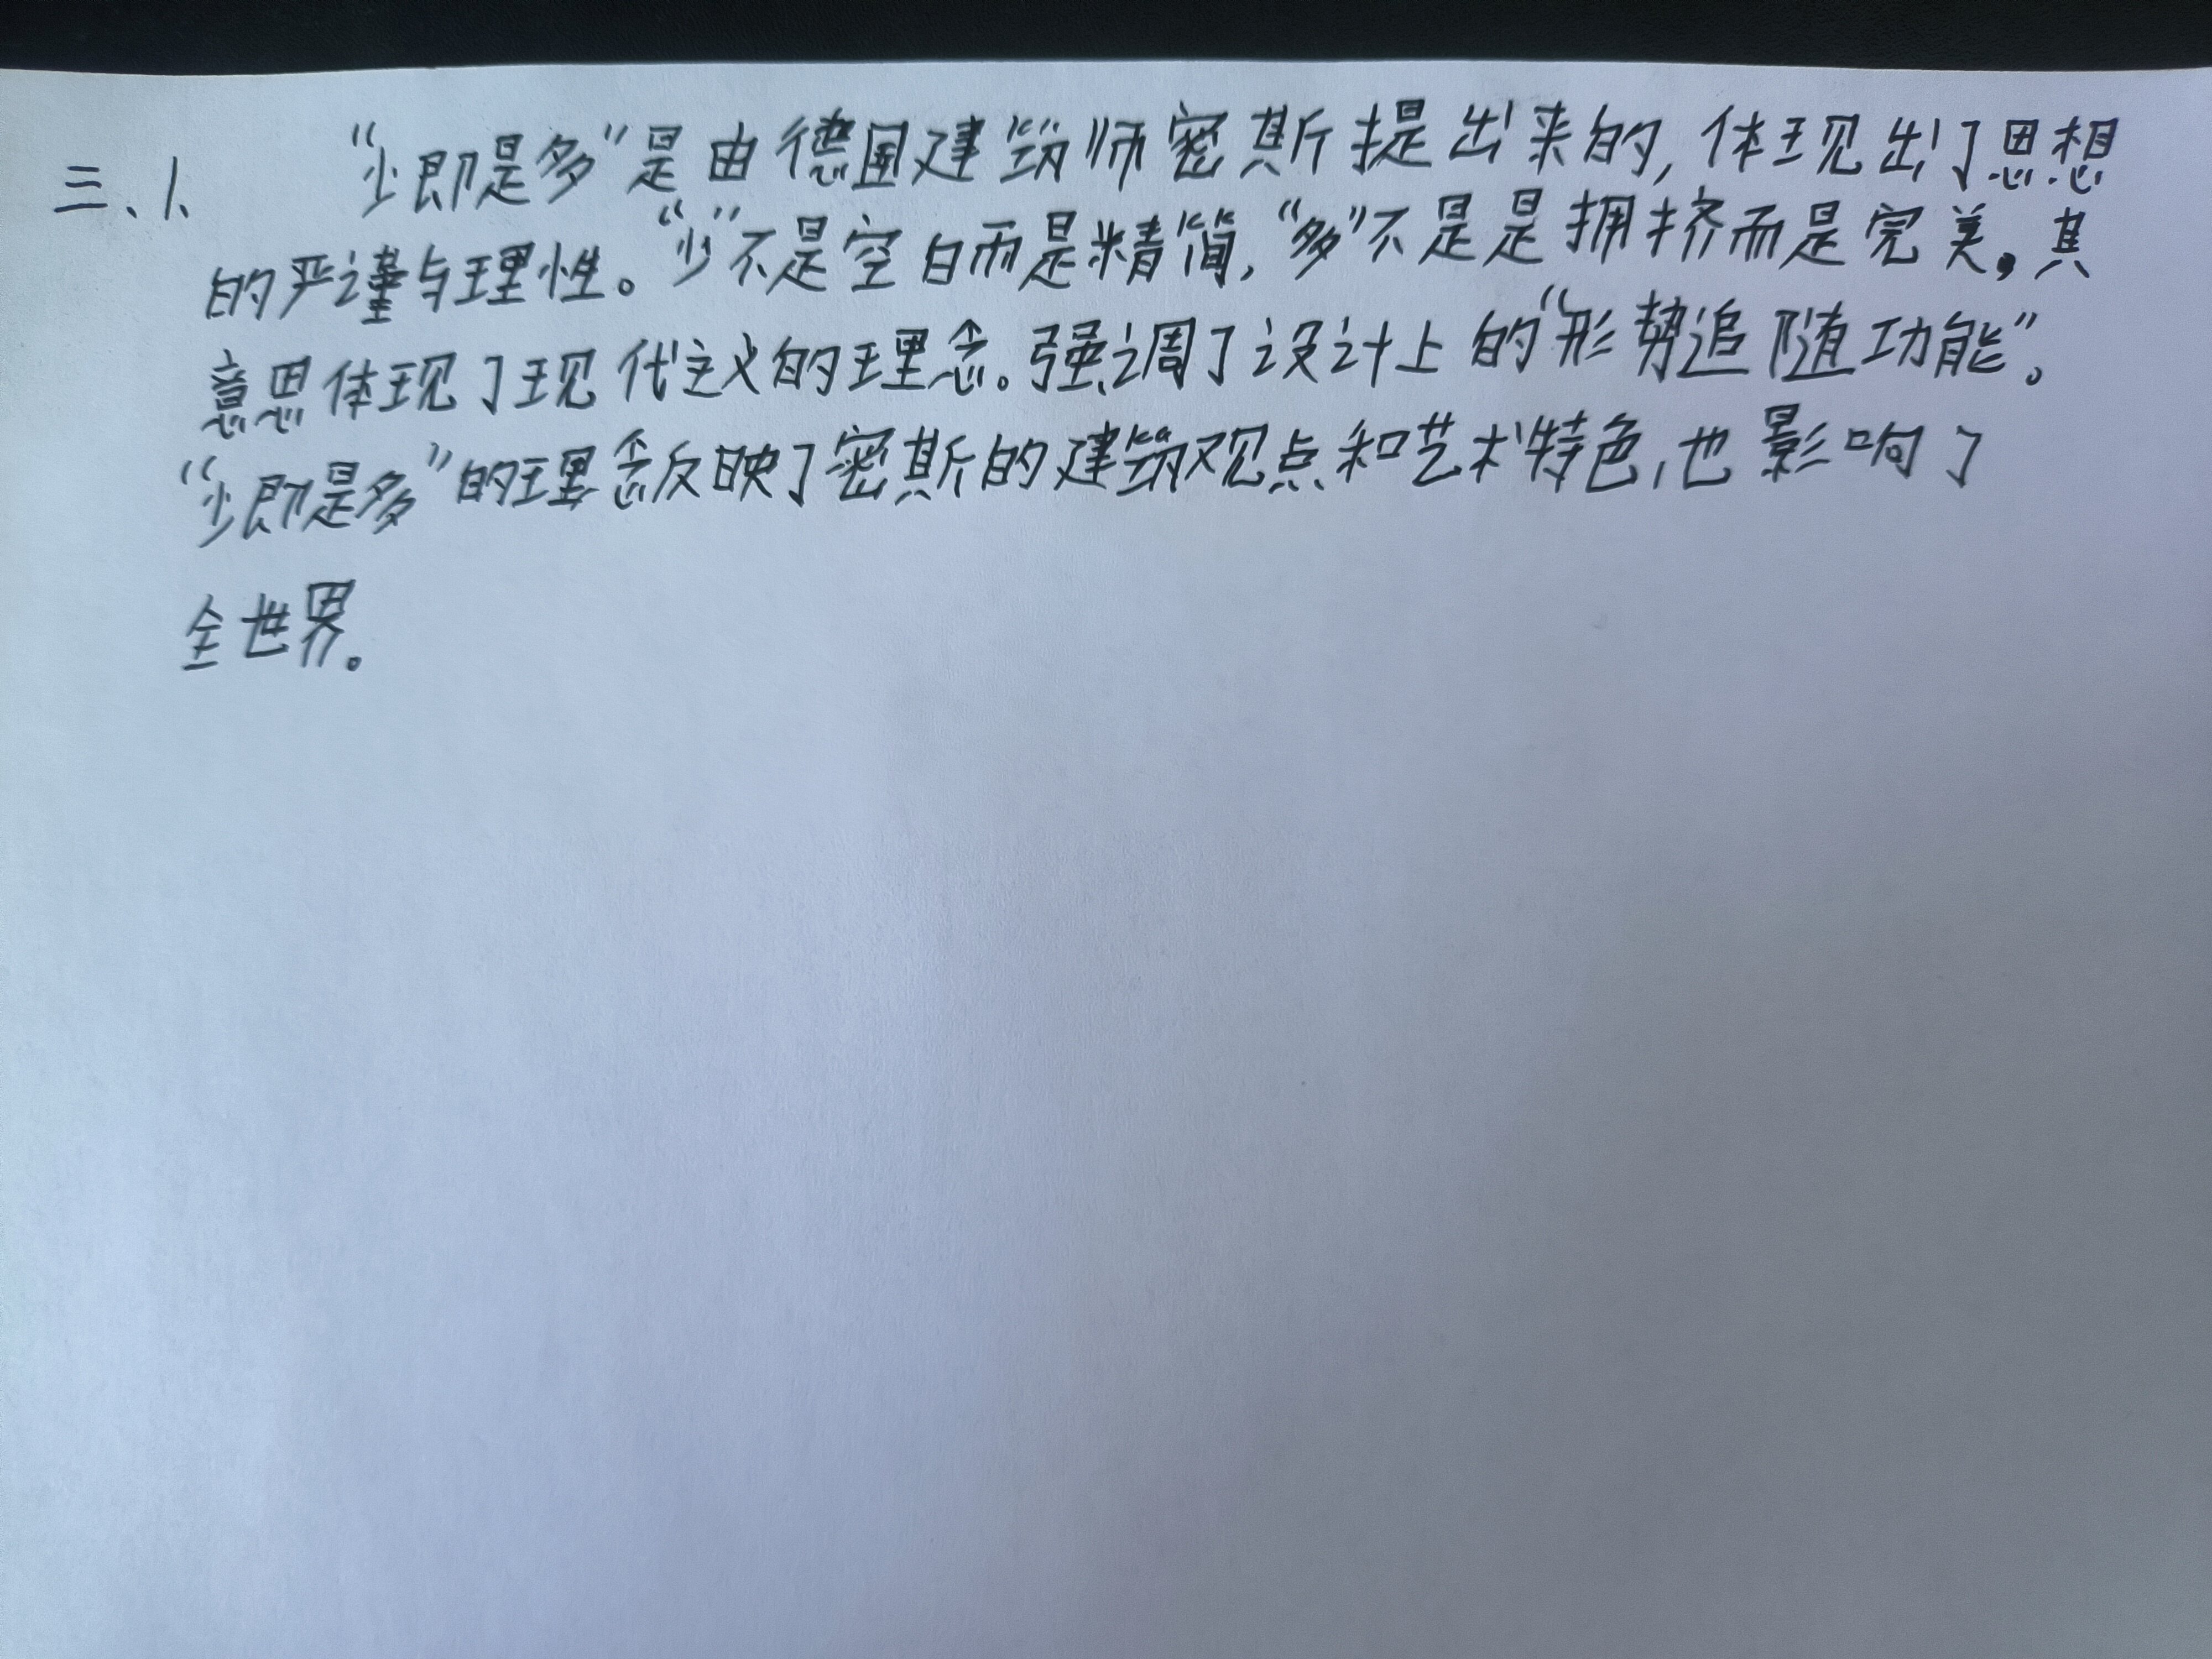 三、1、 “少即是多”是由德国建筑师密斯提出来的,体现出了思想
的严谨与理性。“少”不是空白而是精简,“多”不是是拥挤而是完美。其
意思体现了现代主义的理念。强调了设计上的“形势追随功能”。
“少即是多”的理念反映了密斯的建筑观点和艺术特色,也影响了
全世界。